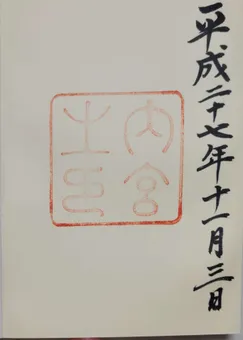 平成二十七年十一月三日
内宮
之印